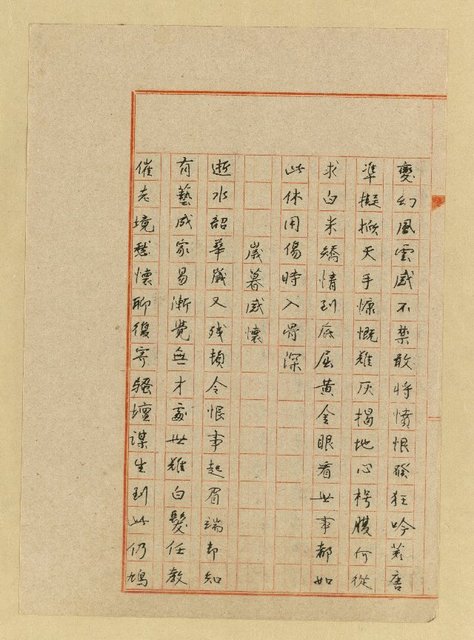 變幻風雲感不禁敢將憤恨發狂吟荒唐
準擬掀天手慷慨難灰揭地心枵腹何從
求白米矯情到底屈黃金眼看世事都如
此休用傷時入骨深
歲暮感懷
逝水韶華歲又殘頓令恨事起眉端却知
有藝成家易漸覺無才處世難白髮任教
催老境愁懷聊復寄騷壇謀生到此仍鳩